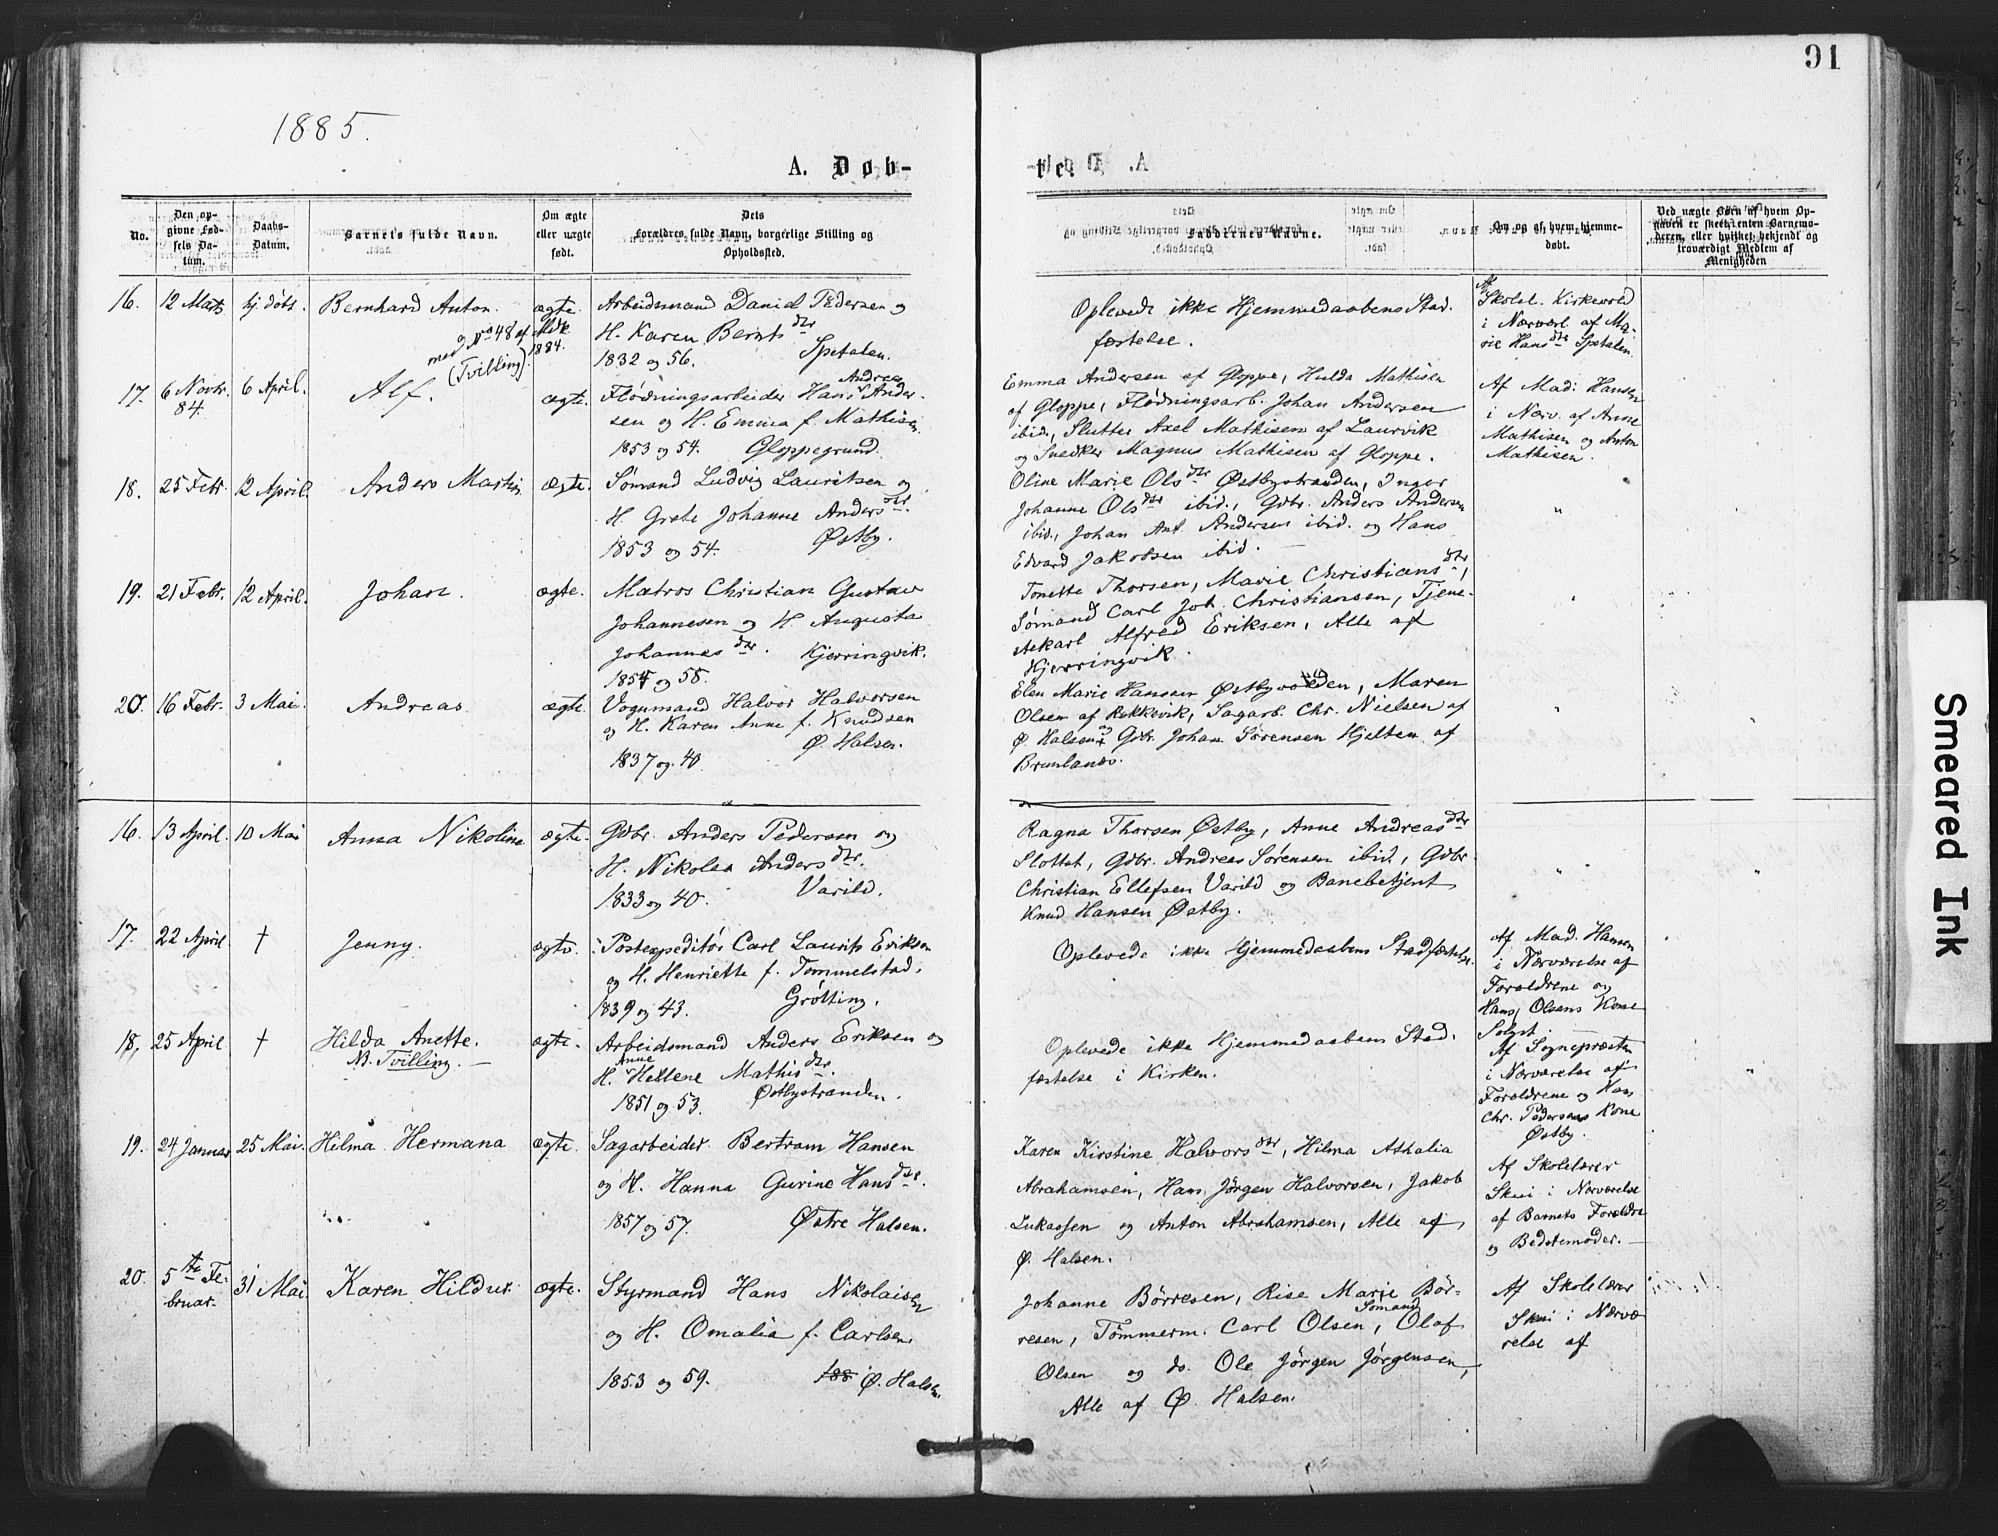 91
1885.
A. Døb-
te.
No.
Den op-
givne Fød-
sels Da-
tum.
Daabs-
Datum.
Barnets fulde Navn.
Om ægte
eller uægte
født.
Dets
Forældres fulde Navn, borgerlige Stilling og
Opholdssted.
Faddernes Navne.
Om og af hvem hjemme-
døbt.
Ved uægte Børn af hvem Op-
gaven er skeet: enten Barnemo-
deren, eller hvilket bekjendt og
troværdigt Medlem af
Menigheden
16.
12 Mats
hj. døbt.
Bernhard Anton.
med No 48 af Mdk. 1884.
(Tvilling).
ægte.
Arbeidsmand Daniel Pedersen og
H. Karen Bernts dtr
1832 og 56. Spetalen.
Oplevede ikke Hjemmedaabens Stad-
fæstelse.
Af
Skolel. Kirkevold
i Nærværl. af Ma-
rie Hans dtr Spetalen.
17.
6 Novbr.
84.
6 April.
Alf.
ægte.
Andreas
Flødningsarbeider Hans Ander-
sen og H. Emma f. Mathisen
1853 og 54. Gloppegrund.
Emma Andersen af Gloppe, Hulda Mathisen
af Gloppe, Flødningsarb. Johan Andersen
ibid., Slutter Axel Mathisen af Laurvik
og Snedker Magnus Mathisen af Gloppe.
Af Mad: Hansen
i Nærv. af Anne
Mathisen og Anton
Mathisen.
18.
25 Febr.
12 April.
Anders Martin
Ægte.
Sømand Ludvig Lauritsen og
H. Grete Johanne Anders dtr.
1853 og 54. Østby.
Oline Marie Ols dtr Østbystranden, Inger
Johanne Ols dtr ibid., Gdbr. Anders Andersen
ibid., Johan Ant. Andersen ibid. og Hans
Edvard Jakobsen ibid.
"
19.
21 Febr.
12 April.
Johan.
ægte.
Matros Christian Gustav
Johannesen og H. Augusta
Johannes dtr. Kjerringvik.
1854 og 58.
Tonette Thorsen, Marie Christians dtr,
Sømand Carl Joh. Christiansen, Tjene-
stekarl Alfred Eriksen, Alle af
Kjerringvik.
"
20.
16 Febr.
3 Mai.
Andreas.
ægte.
Vognmand Halvor Halvorsen
og H. Karen Anne f. Knudsen
Ø. Halsen.
1837 og 40.
Elen Marie Hansen Østbyvolden, Maren
Olsen af Rekkevik, Sagarb. Chr. Nielsen af
Ø. Halsen og Gdbr. Johan Sørensen Hjelten af
Brunlanæs.
"
16.
13 April.
10 Mai
Anna Nikoline
ægte.
Gdbr. Anders Pedersen og
H. Nikolea Anders dtr.
1833 og 40. Varild.
Ragna Thorsen Østby, Anne Andreas dtr
Slottet, Gdbr. Andreas Sørensen ibid., Gdbr.
Christian Ellefsen Varild og Banebetjent
Knud Hansen Østby.
"
"
17.
22 April
†
Jenny.
ægte.
Postexpeditør Carl Laurits Eriksen
og H. Henriette f. Tømmelstad.
1839 og 43. Grøtting.
Oplevede ikke Hjemmedaabens Stadfæstelse.
Af Mad. Hansen
i Nærværelse af
Forældrene og
Hans Olsens Kone
18.
25 April
†
Hilda Anette.
N. Tvilling.
ægte.
Arbeidsmand Anders Eriksen og
Anne
H. Hellene Mathis dtr.
1851 og 53. Østbystranden.
Oplevede ikke Hjemmedaabens Stad-
fæstelse i Kirken.
Af Sognepræsten
i Nærværelse af
Forældrene og Hans
Chr. Pedersens Kone
Østby.
"
19.
24 Januar
25 Mai.
Hilma Hermana
ægte.
Sagarbeider Bertram Hansen
og H. Hanna Gurine Hans dtr.
1857 og 57. Østre Halsen.
Karen Kirstine Halvors dtr, Hilma Athalia
Abrahamsen, Hans Jørgen Halvorsen, Jakob
Lukassen og Anton Abrahamsen, Alle af
Ø. Halsen.
Af Skolelærer
Skui i Nærværelse
af Barnets Forældre
og Bedstemoder.
20.
5te Fe-
bruar.
31 Mai.
Karen Hildur.
ægte.
Styrmand Hans Nikolaisen
og H. Omalia f. Carlsen
1853 og 59. 188 Ø. Halsen.
Johanne Børresen, Rise Marie Bør-
resen, Tømmerm. Carl Olsen, Sømand Olaf
Olsen og do. Ole Jørgen Jørgensen,
Alle af Ø. Halsen.
Af Skolelærer
Skui i Nærvæ
relse af
Smeared Ink